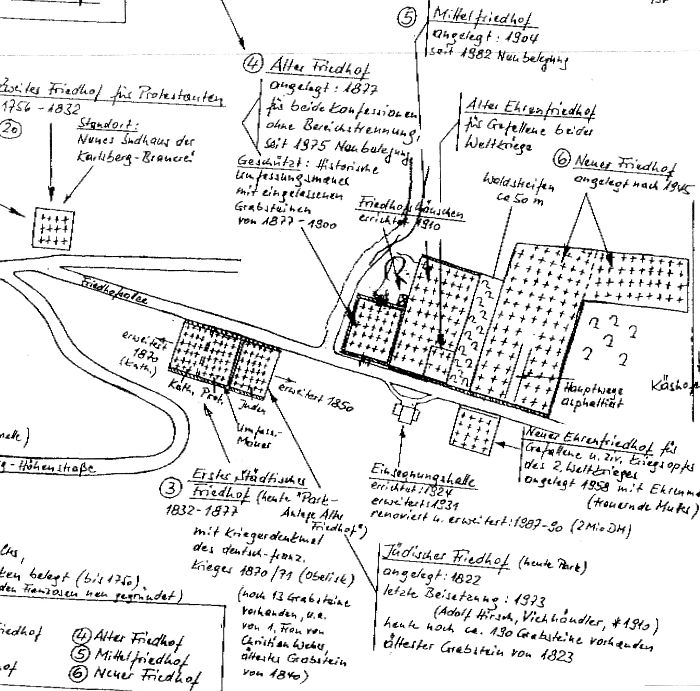 ⑤ Mittelfriedhof
angelegt: 1904
seit 1982 Neubelegung
④ Alter Friedhof
angelegt: 1877
für beide Konfessionen
ohne Bereichstrennung,
seit 1975 Neubelegung
Geschützt: Historische
Umfassungsmauer
mit eingelassenen
Grabsteinen
von 1877-1900
Zweites Friedhof für Protestanten
1756-1832
②a
Standort:
Neues Sudhaus der
Karlsberg-Brauerei
Alter Ehrenfriedhof
für Gefallene beider
Weltkriege
⑥ Neuer Friedhof
angelegt nach 1945
Waldstreifen
ca 50 m
Friedhofshäuschen
errichtet 1910
Friedhofsallee
erweitert
1870
(kath.)
Kath. Prot. Juden
Umfass.-
Mauer
erweitert 1850
Hauptwege
asphaltiert
Käshofe
-Höhenstraße
③ Erster Städtischer
Friedhof (heute "Park-
Anlage Alter
Friedhof")
1832-1877
mit Kriegerdenkmal
des deutsch-franz.
Krieges 1870/71 (Obelisk)
(noch 13 Grabsteine
vorhanden, u.a.
von 1. Frau von
Christian Weber,
ältester Grabstein
von 1840)
Einsegnungshalle
errichtet: 1924
erweitert: 1931
renoviert u. erweitert: 1987-90 (2 Mio DM)
Neuer Ehrenfriedhof für
Gefallene u. ziv. Kriegsopfe
des 2. Weltkrieges
angelegt 1958 mit Ehrenma
(trauernde Mutter)
Jüdischer Friedhof (heute Park)
angelegt: 1822
letzte Beisetzung: 1973
(Adolf Hirsch, Viehhändler, *1910)
heute noch ca. 190 Grabsteine vorhanden
ältester Grabstein von 1823
ken belegt (bis 1750)
den Franzosen neu gegründet)
iedhof
④ Alter Friedhof
⑤ Mittelfriedhof
⑥ Neuer Friedhof